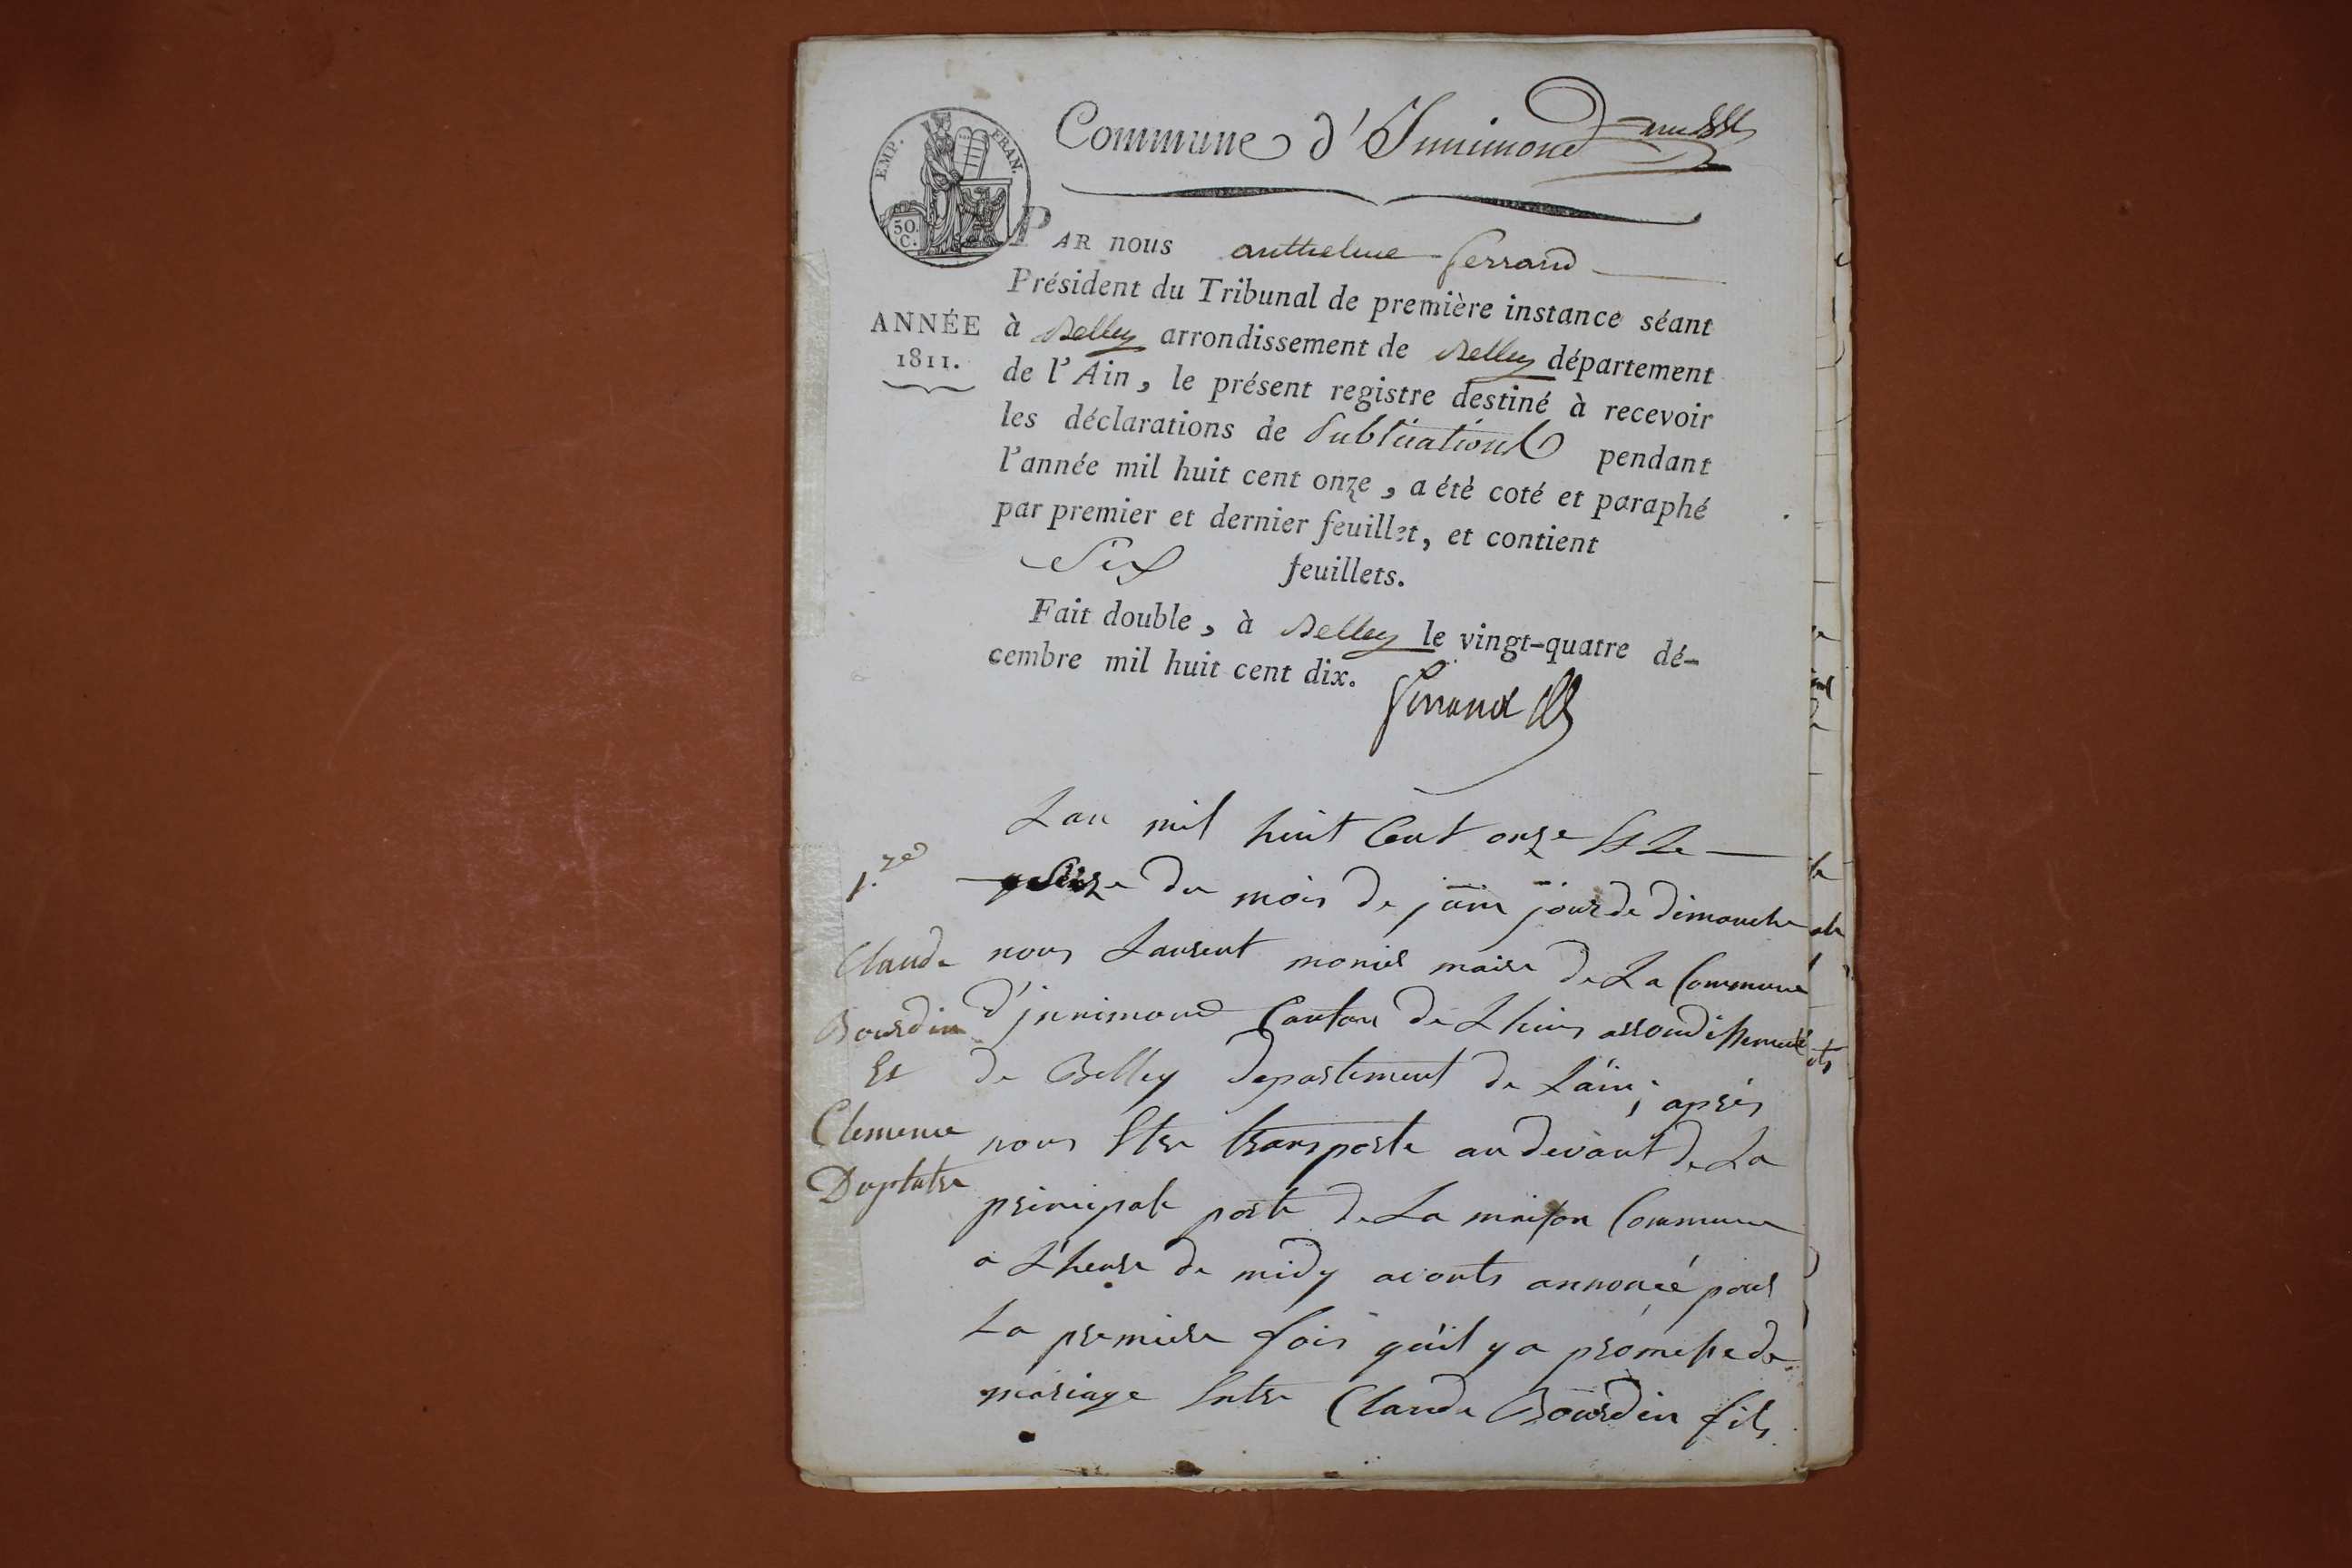 Commune d'Innimond
EMP. FRAN.
50. C.
PAR nous anthelme ferrand
Président du Tribunal de première instance séant
ANNÉE 1811.
à Belley arrondissement de Belley département
de l'Ain, le présent registre destiné à recevoir
les déclarations de Publications pendant
l'année mil huit cent onze, a été coté et paraphé
par premier et dernier feuillet, et contient
Six feuillets.
Fait double, à Belley le vingt-quatre dé-
cembre mil huit cent dix.
ferrand
Lan mil huit Cent onze Et Le
seize du mois de juin jour de dimanche
nous Laurent monier maire de La Commune
d'innimond Canton de Lhuis arrondissement
de Belley departement de Lain; après
nous Etre transporté au devant de La
principale porte de La maison Commune
a L'heure de midy avons annoncé pour
La premiere fois quil y a promesse de
mariage Entre Claude Bourdin fils
1.re
Claude
Bourdin
Et
Clemence